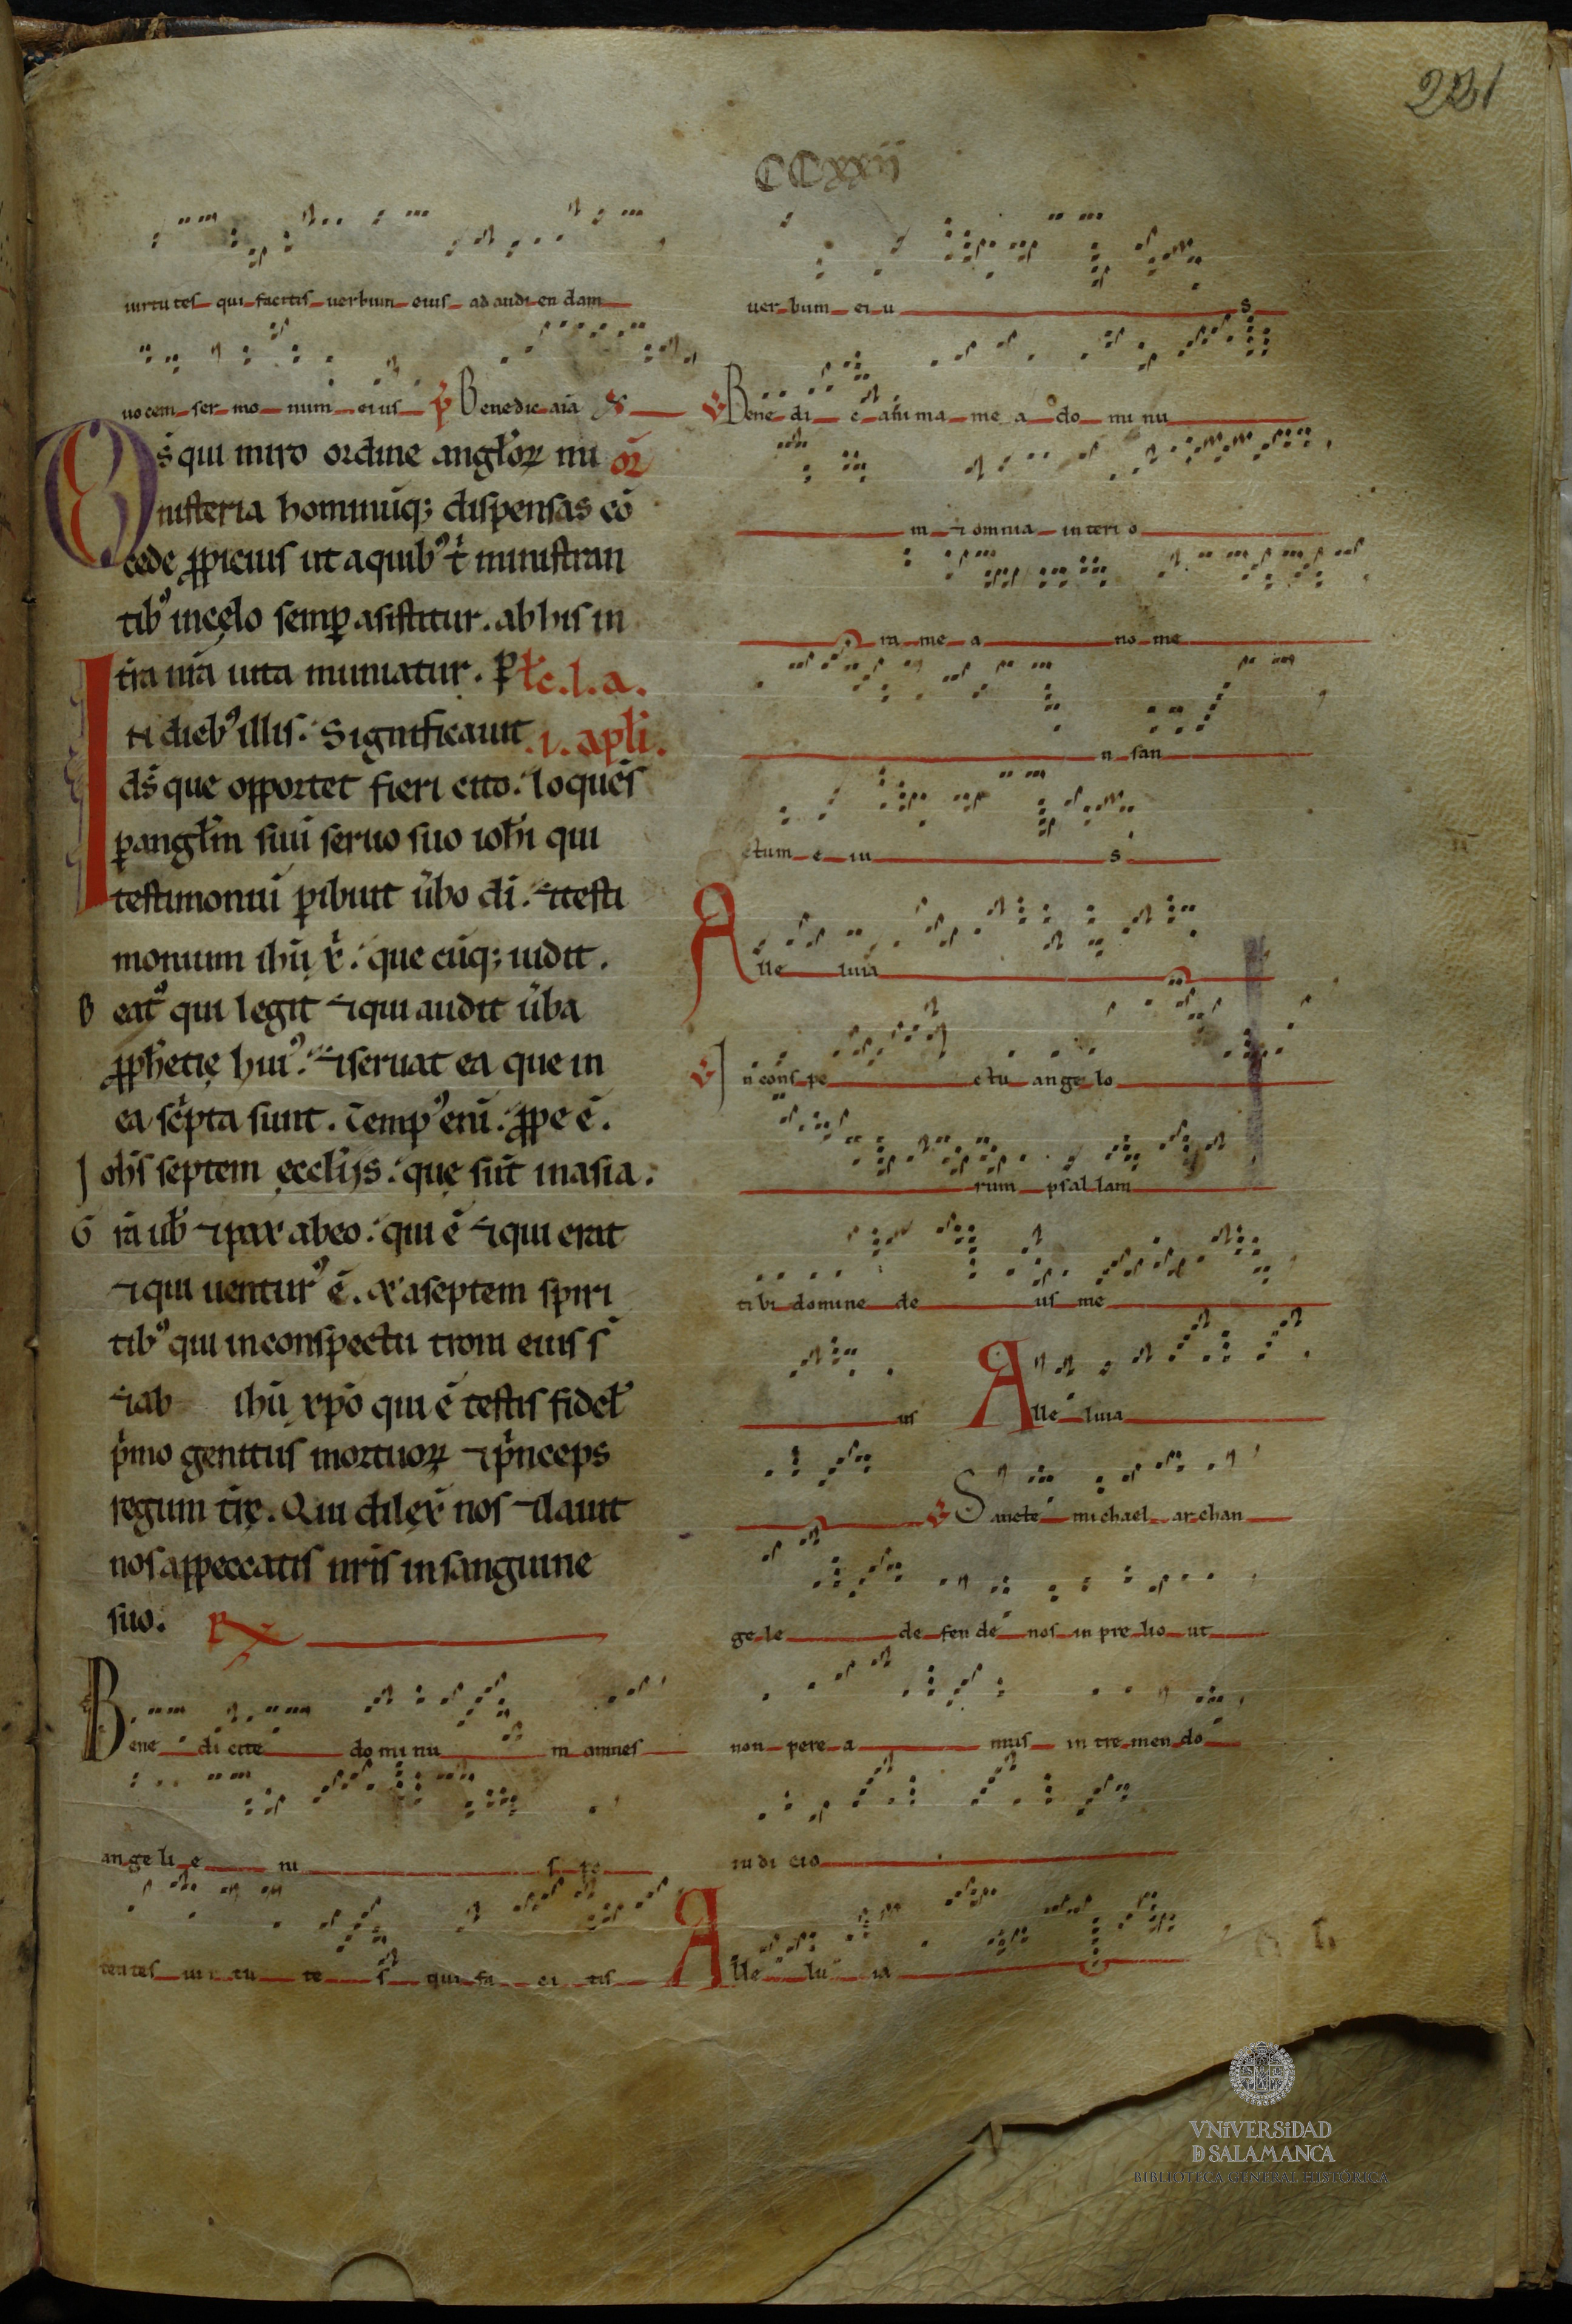 221
CCxxii
uirtutes qui facitis uerbum eius ad audiendam
uocem sermonum eius P Benedic aīa
Ds̄ qui miro ordine angłoꝝ mi oꝝ̄
nisteria hominūq; dispensas cō
cede ꝓpicius ut a quibꝰ t̄ ministran
tibꝰ in cęlo semꝑ asistitur. ab his in
t̄ra nr̄a uita muniatur. ꝑ łc. l. a.
In diebꝰ illis. Significauit .i. apłi.
ds̄ que opportet fieri cito. loquēs
ꝑ angłm suū seruo suo ioħi qui
testimoniū ꝑibuit ūbo dī. ⁊ testi
monium ihū x̄. que cūq; uidit.
Beatꝰ qui legit ⁊ qui audit ūba
ꝓphetię huiꝰ. ⁊ seruat ea que in
ea sc̄pta sunt. Tempꝰ enī. ꝓpe ē.
Iohs̄ septem ęccłijs. quę sūt in asia.
Grā ub̄ ⁊ pax ab eo. qui ē ⁊ qui erat
⁊ qui uenturꝰ ē. & a septem spiri
tibꝰ qui in conspectu troni eius s̄
⁊ ab ihū xp̄o qui ē testis fideł
p̄mo genitus mortuoꝝ ⁊ p̄nceps
regum t̄rę. Qui dilex̄ nos ⁊ lauit
nos a ppeccatis nr̄is in sanguine
suo. R
Bene dicite dominu m omnes
angeli e iu s po
tentes uir tu te s qui fa ci tis
uer bum ei u s
V Bene di c anima me a do mi nu
m ⁊ omnia interi o
ra me a no me
n san
ctum e iu s
Alle luia
V In conspe ctu ange lo
rum psal lam
tibi domine de us me
us Alle luia
V Sancte michael archan
ge le de fen de nos in pre lio ut
non pere a mus in tre men do
iudi cio
Alle lu ia
VNiVERSiDAD
D SALAMANCA
BIBLIOTECA GENERAL HISTÓRICA